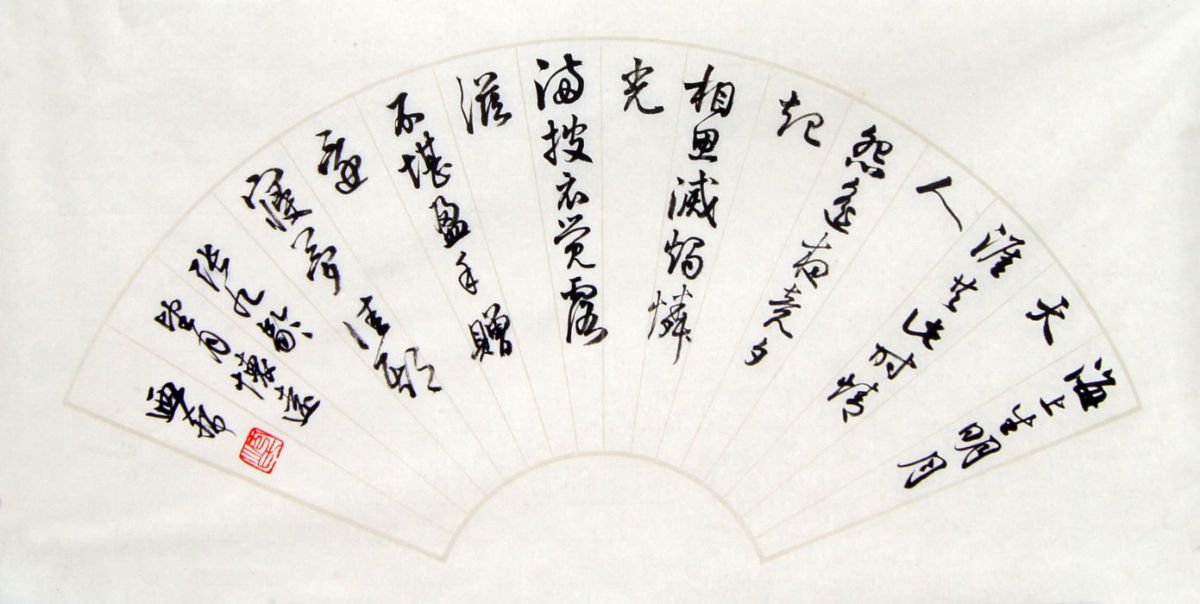 海上生明月
天
涯共此时情
人
怨遥夜竟夕
起
相思滅燭憐
光
满披衣觉露
滋
不堪盈手贈
還
寝夢佳期
张九龄
望月懷遠